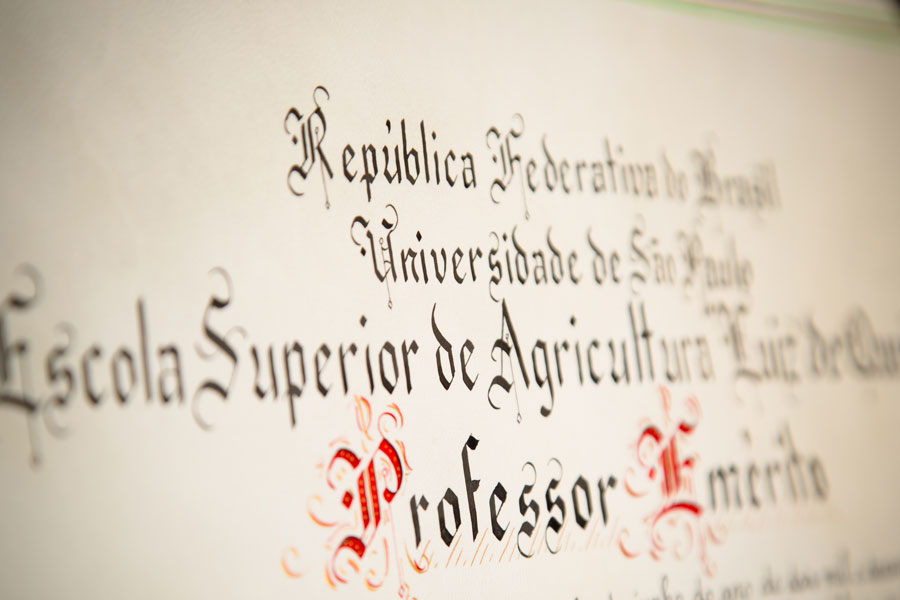 República Federativa do Brasil
Universidade de São Paulo
Escola Superior de Agricultura "Luiz de Qu
Professor Emérito
ano de dois mil e